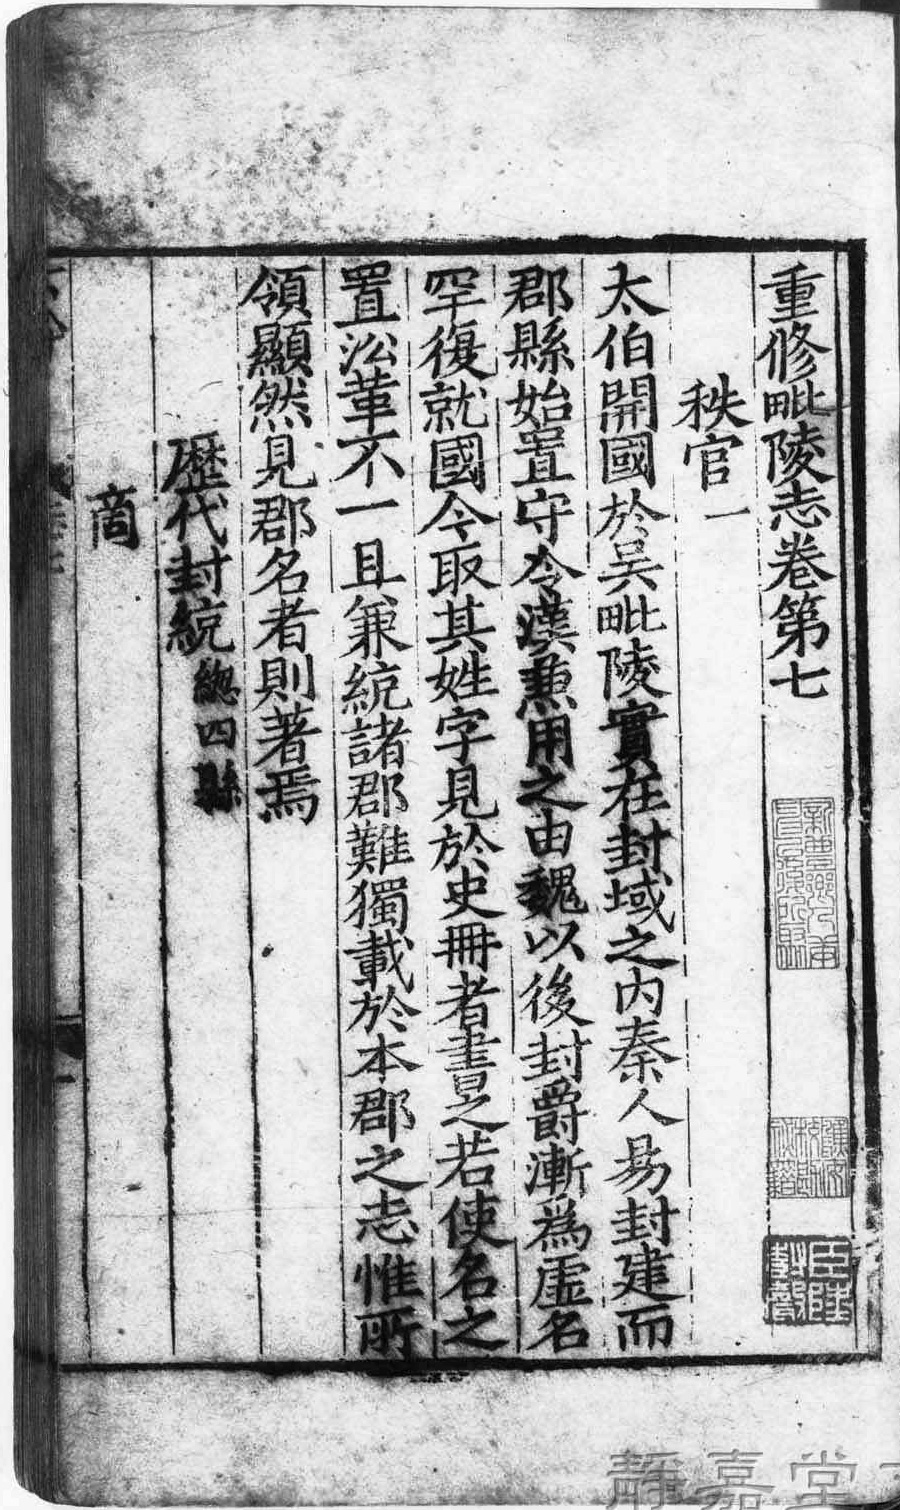 重修毗陵志卷第七
秩官一
太伯開國於吴毗陵實在封域之内秦人易封建而
郡縣始置守令漢蕉用之由魏以後封爵漸爲虚名
罕復就國今取其姓字見於史冊者書之若使名之
置㳂革不一且兼統諸郡難獨載於本郡之志惟所
領顯然見郡名者則著焉
歷代封統 緫四縣
商
靜嘉堂